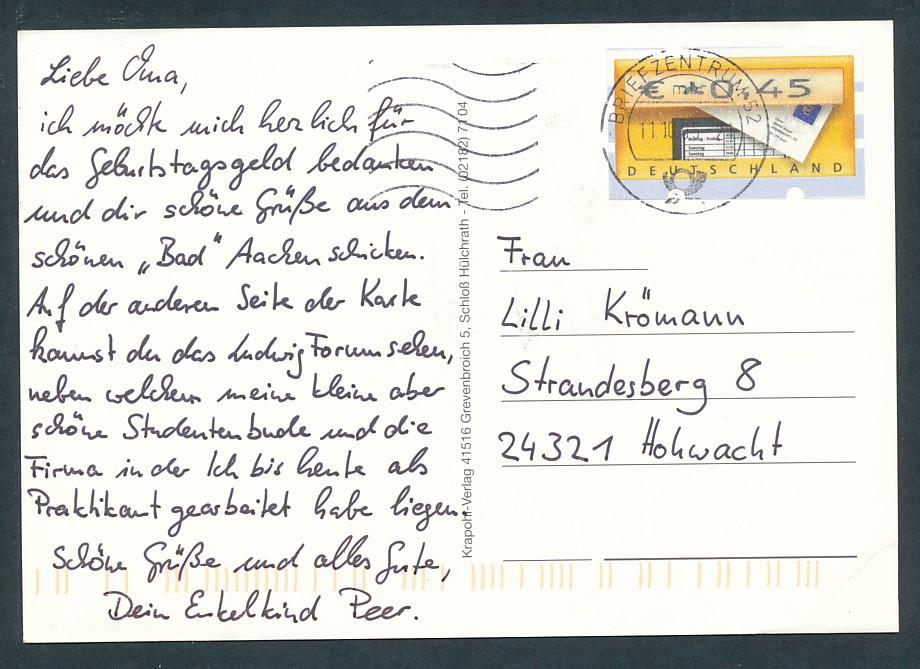 Liebe Oma,
ich möchte mich herzlich für
das Geburtstagsgeld bedanken
und dir schöne Grüße aus dem
schönen „Bad“ Aachen schicken.
Auf der anderen Seite der Karte
kannst du das Ludwig Forum sehen,
neben welchem meine kleine aber
schöne Studentenbude und die
Firma in der Ich bis heute als
Praktikant gearbeitet habe liegen.
Schöne Grüße und alles Gute,
Dein Enkelkind Peer.
Krapohl-Verlag 41516 Grevenbroich 5, Schloß Hülchrath - Tel. (02182) 7104
BRIEFZENTRUM 52
11.10
€ 0,45
DEUTSCHLAND
Frau
Lilli Krömann
Strandesberg 8
24321 Hohwacht